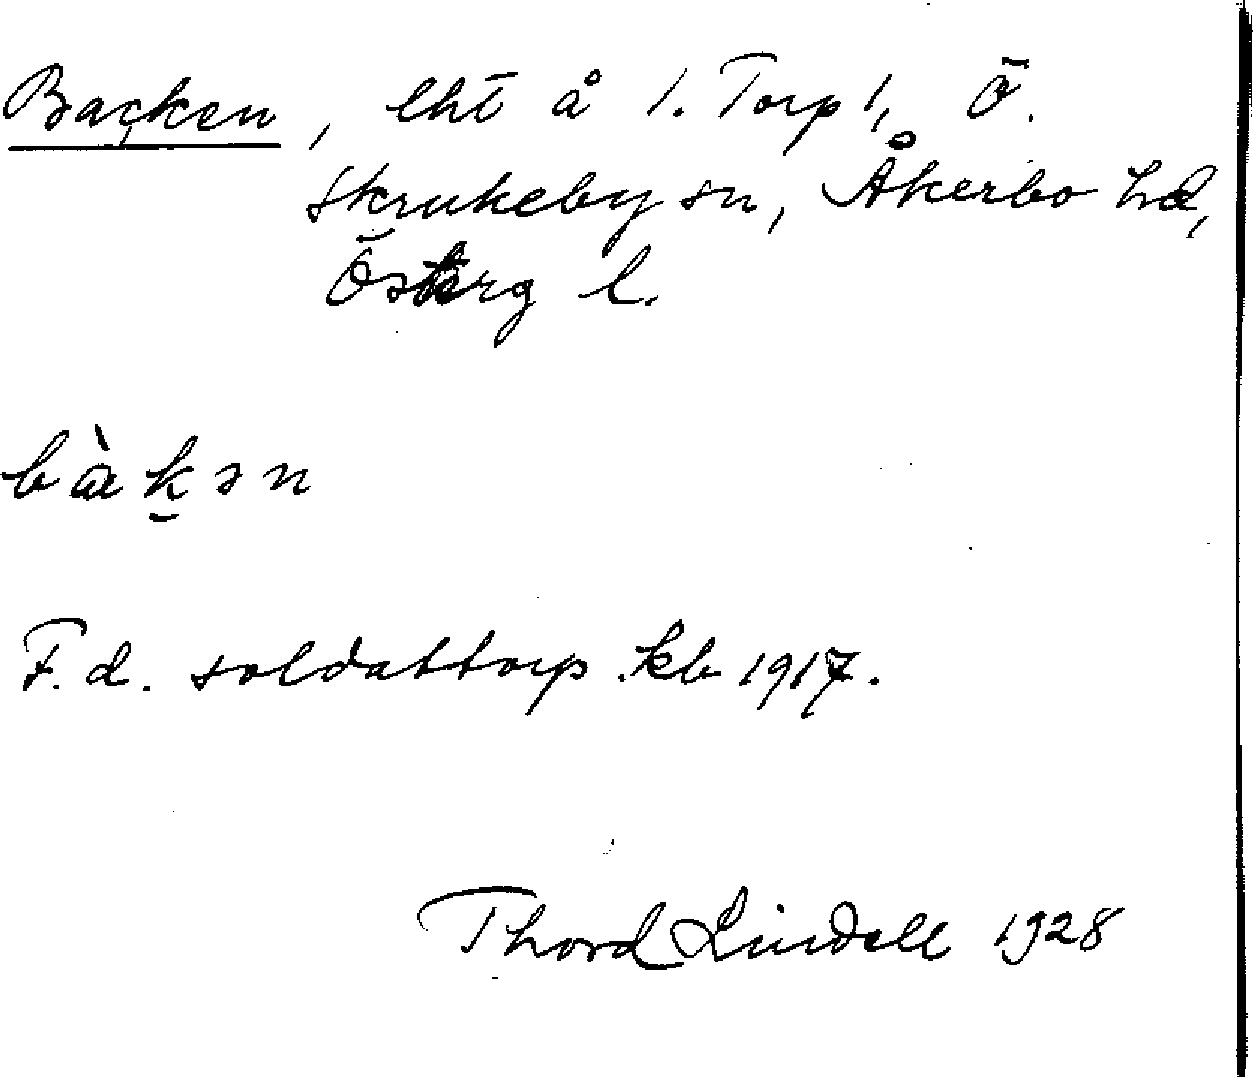 Backen, lht å 1. Torp 1, Ö.
Skrukeby sn, Åkerbo hd,
Österg l.
bàk̠ən
F.d. soldattorp kb 1917.
Thord Lindell 1928